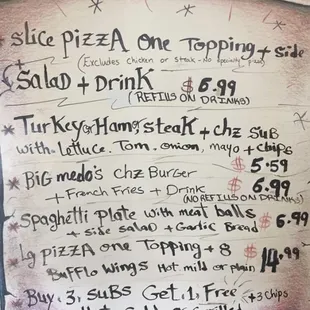 * slice pizzA one Topping + side
(Excludes chicken or steak - No specialty pizza)
+ SalaD + DrinK $6.99
(REFILLS ON DRINKS)
* Turkey or Ham, steak + chz SuB
with lattuce. Tom. onion, mayo + chips
$5.59
* BiG medo's chz Burger
+ French Fries + Drink $6.99
(NO REFILLS ON DRINKS)
* Spaghetti plate with meat balls
+ side salad + Garlic Bread $6.99
* Lg pizzA one Topping + 8
Bufflo wings Hot mild or plain $14.99
* Buy, 3, suBs Get, 1, Free + 3 Chips